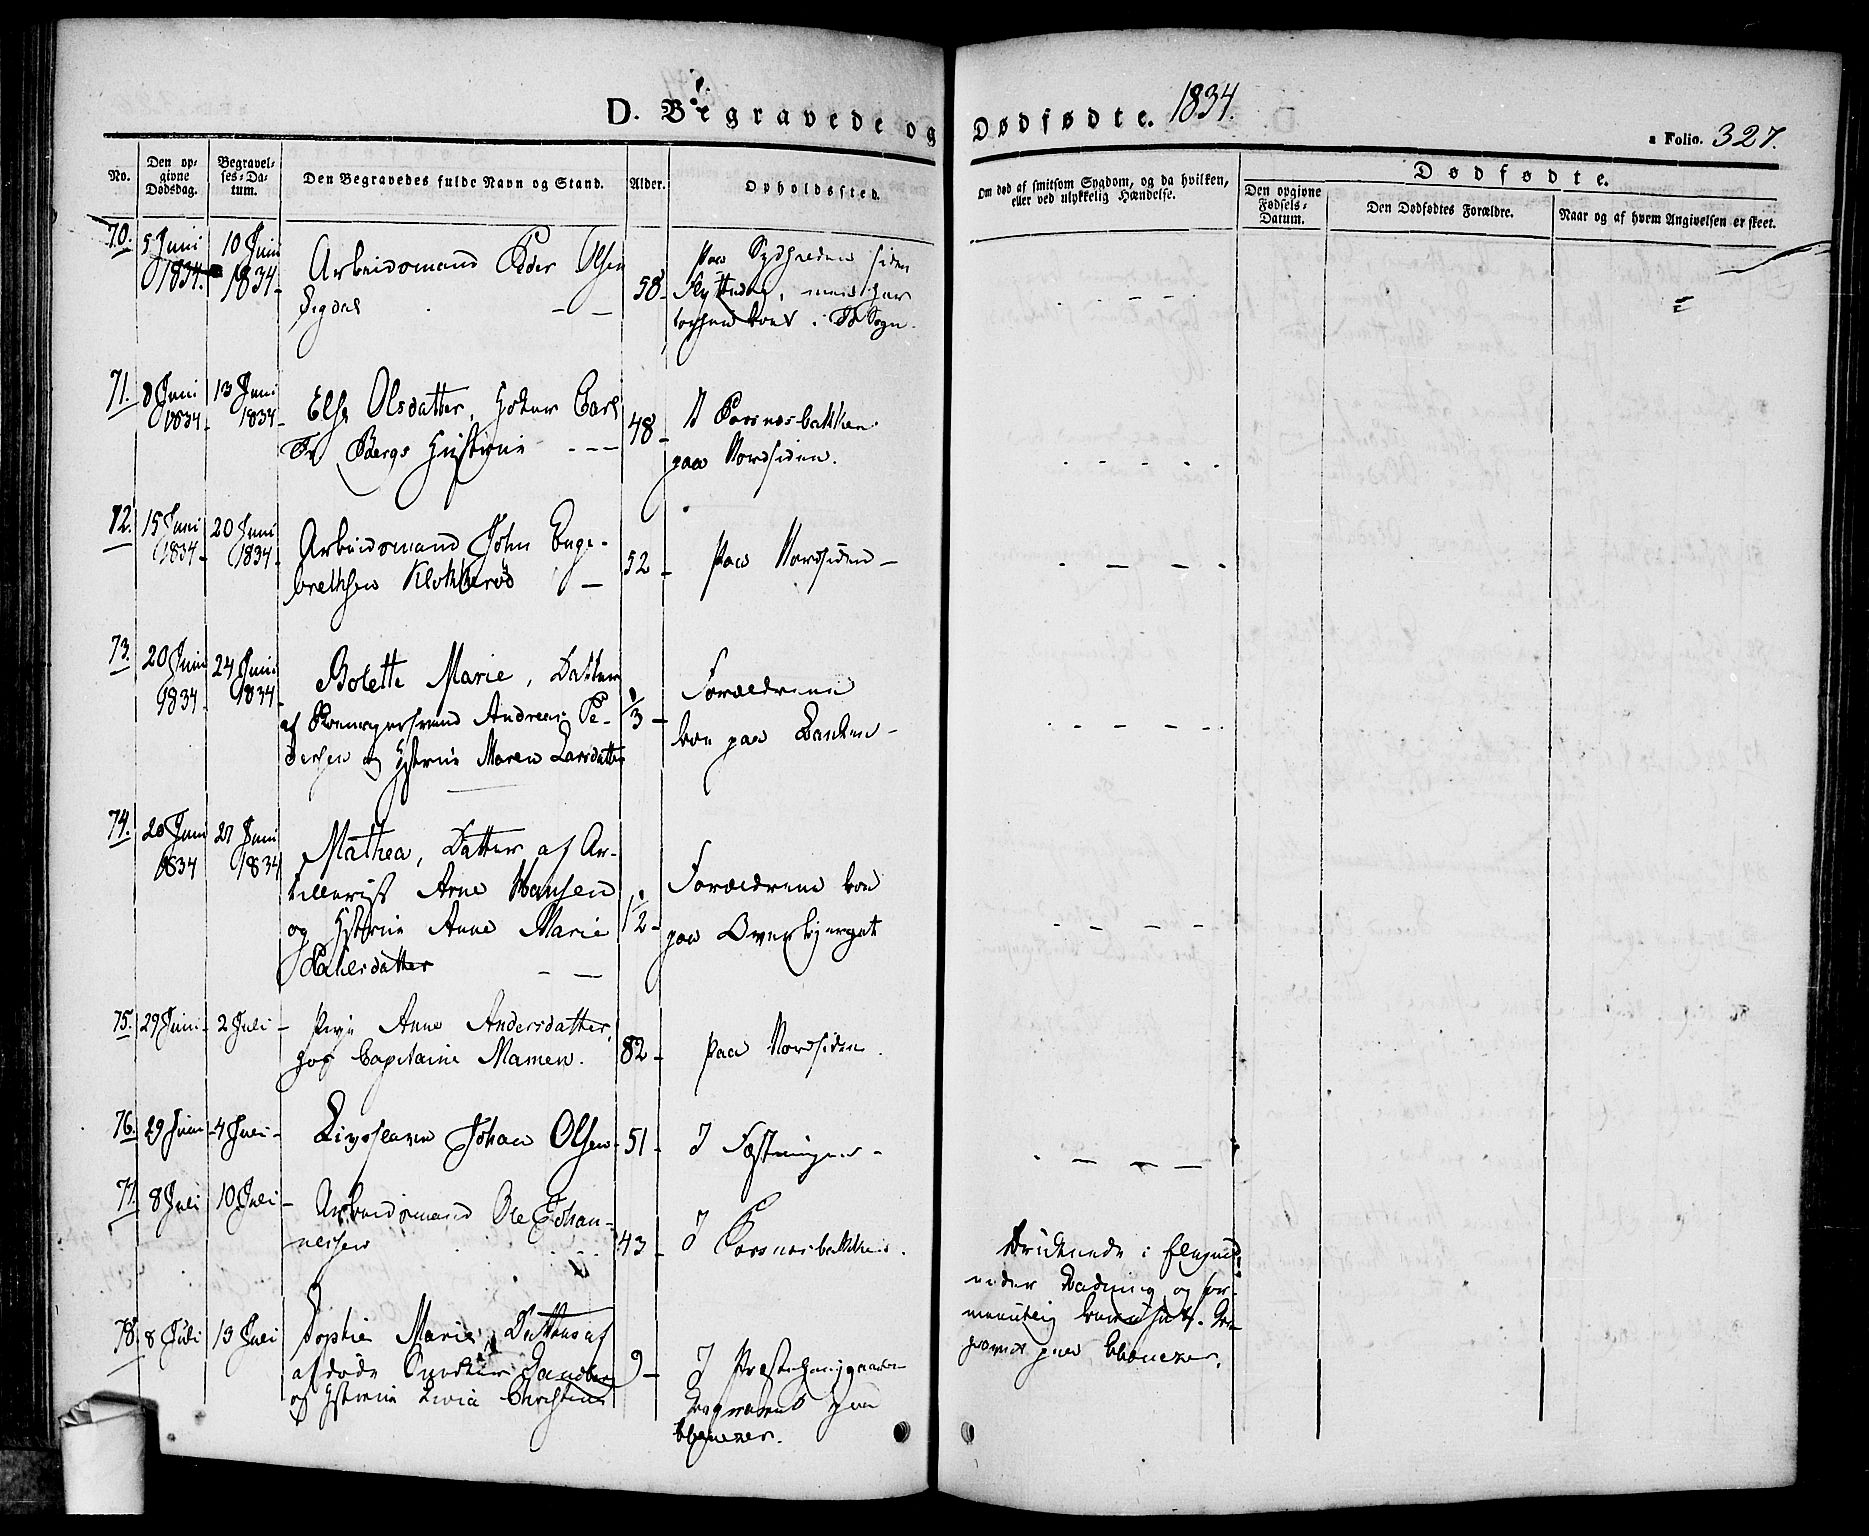 D. Begravede og Dødfødte. 1834.
a Folio. 327.
No.
Den opgivne Dødsdag.
Begravelses-Datum.
Den Begravedes fulde Navn og Stand.
Alder.
Opholdssted.
Om død af smitsom Sygdom, og da hvilken, eller ved ulykkelig Hændelse.
Dødfødte.
Den opgivne Fødsels-Datum.
Den Dødfødtes Forældre.
Naar og af hvem Angivelsen er skeet.
70. 5 Juni 10 Juni
1834. 1834.
Arbeidsmand Peder Olsen
Sigdal
58
paa Sydsiden siden
71. 8 Juni 13 Juni
1834. 1834.
Else Olsdatter, Høker Carl
Fr Bergs Hustrue
48
I Porsnesbakken
paa Nordsiden.
72. 15 Juni 20 Juni
1834 1834
Arbeidsmand John Enge-
brethsen Klokkerød
52
paa Nordsiden
73. 20 Juni 24 Juni
1834 1834
Bolette Marie, Datter
af Andreas Pe-
dersen og Hustrue Maren Larsdatter
1/3
Forældrene
boe paa Banken
74. 20 Juni 27 Juni
1834 1834
Mathea, Datter af Ar-
tillerist Arne Hansen
og Hustrue Anne Marie
1/2
Forældrene boe
paa Overbjerget
75. 29 Juni 2 Juli
Pige Anne Andersdatter,
hos Capitaine Mamen.
82
paa Nordsiden.
76. 29 Juni 4 Juli
Livsslaven Johan Olsen
51
I Fæstningen
77. 8 Juli 10 Juli
Arbeidsmand Ole Johan-
nessen
43
I Porsnesbakken.
Druknede i
under Badning og for-
meentlig beruset. Be-
gravet paa Ebenezer.
78. 8 Juli 13 Juli
Sophie Marie, Datter af
afdøde Sandberg
og Hustrue Livia Christine
9
I Præstegaarden
Begravet paa
Ebenezer.